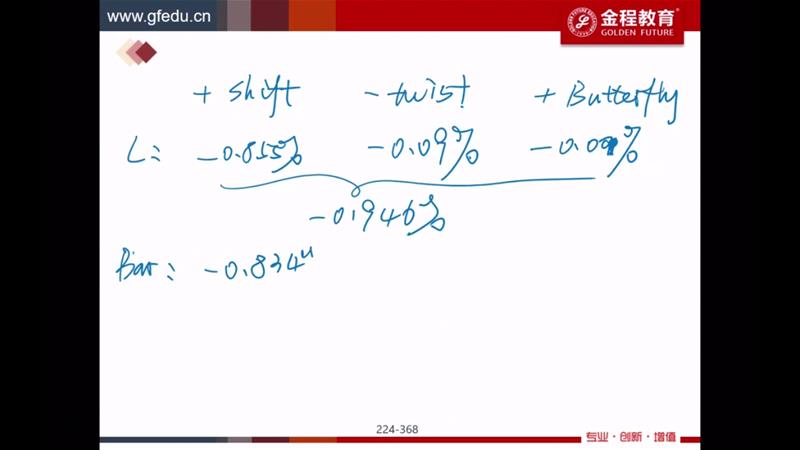 www.gfedu.cn
金程教育®
GOLDEN FUTURE
+ Shift - twist + Butterfly
L: -0.855% -0.09% -0.001%
-0.946%
Bar: -0.834
224-368
专业·创新·增值